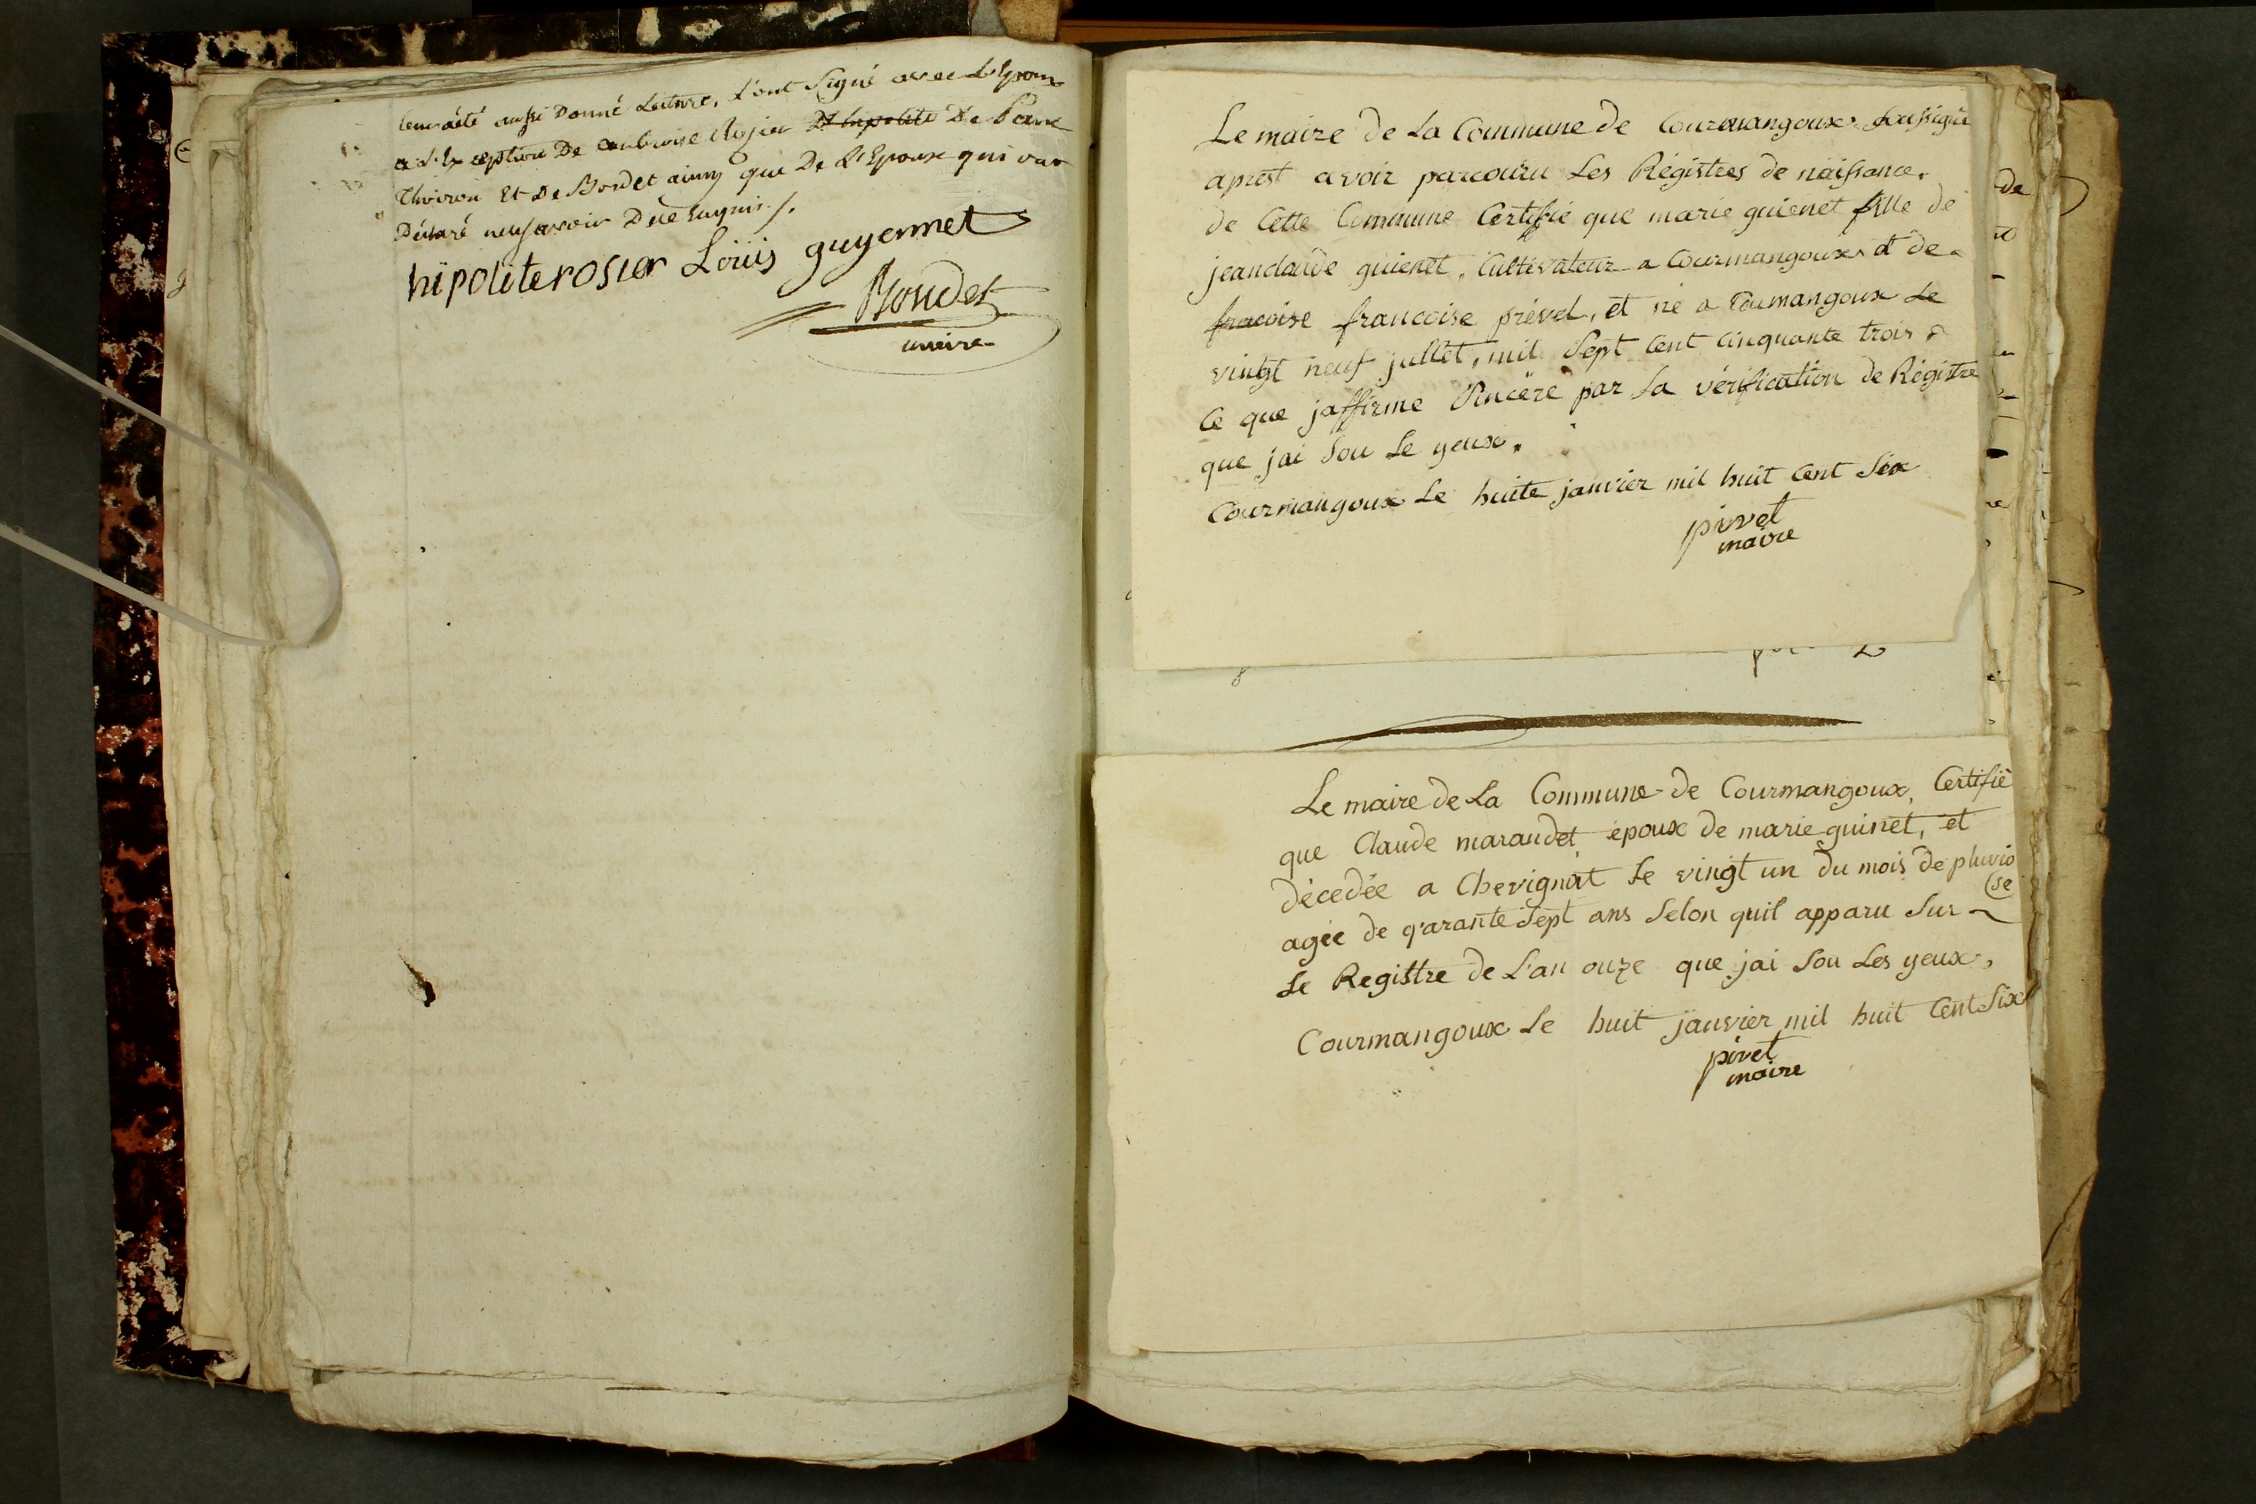 leur aété aussi Donné Lecture, L'ont Signé avec L'Epoux
a L'Exception De ambroise Rosier De hipolite De Pierre
Thivion Et De Bordet ainsy que De L'Epouse qui ont
Déclaré
hipolite rosier Loüis guyennet
Bondet
maire
Le maire de La Commune de Courmangoux Soussigné
aprest avoir parcouru Les Régistres de naissance.
de Cette Commune Certifié que marie guienet fille de
jeanclaude guienet, Cultivateur a Courmangoux et de
fracoise francoise prével, et né a Coumangoux Le
vingt neuf jullet, mil Sept Cent Cinquante trois
Ce que jaffirme Sincere par La vérification de Régistre
que jai Sou Le yeux.
Courmangoux Le huite janvier mil huit Cent Six
pivet
maire
Le maire de La Commune de Courmangoux, Certifié
que Claude maraudet époux de marie guinet, et
décedée a Chevignat Le vingt un du mois de pluvio
(se
agée de qarante Sept ans Selon quil apparu Sur
Le Registre de L'an onze que jai Sou Les yeux,
Courmangoux Le huit janvier mil huit Cent Six
pivet
maire